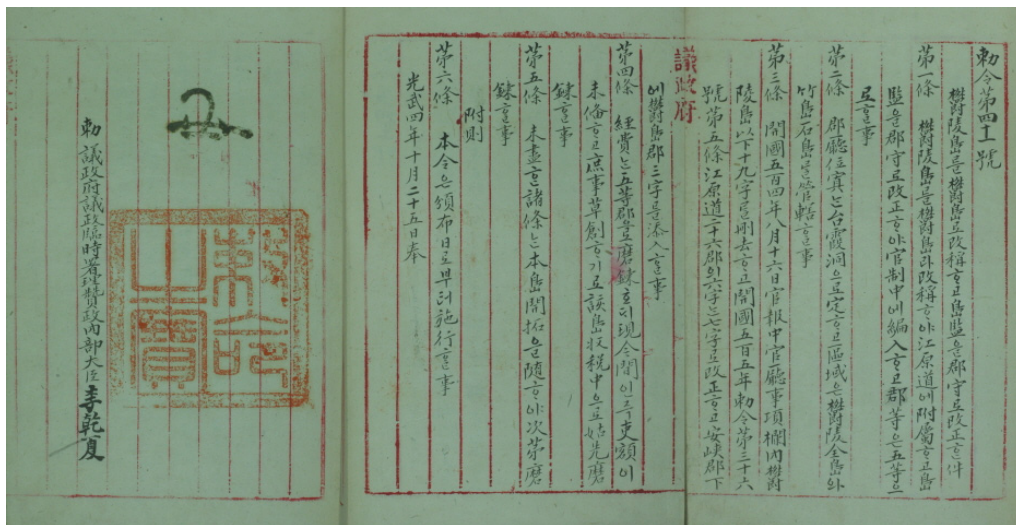 勅令第四十一號
鬱陵島를鬱島로改稱ᄒᆞ고島監을郡守로改正ᄒᆞᆫ件
第一條 鬱陵島를鬱島라改稱ᄒᆞ야江原道에附屬ᄒᆞ고島
監을郡守로改正ᄒᆞ야官制中에編入ᄒᆞ고郡等은五等으
로ᄒᆞᆯ事
第二條 郡廳位寘는台霞洞으로定ᄒᆞ고區域은鬱陵全島와
竹島石島를管轄ᄒᆞᆯ事
第三條 開國五百四年八月十六日官報中官廳事項欄內鬱
陵島以下十九字를刪去ᄒᆞ고開國五百五年勅令第三十六
號第五條江原道二十六郡의六字는七字로改正ᄒᆞ고安峽郡下
議政府
에鬱島郡三字를添入ᄒᆞᆯ事
第四條 經費는五等郡으로磨鍊호ᄃᆡ現今間인즉吏額이
未備ᄒᆞ고庶事草創ᄒᆞ기로該島收稅中으로姑先磨
鍊ᄒᆞᆯ事
第五條 未盡ᄒᆞᆫ諸條는本島開拓을隨ᄒᆞ야次第磨
鍊ᄒᆞᆯ事
附則
第六條 本令은頒布日로부터施行ᄒᆞᆯ事
光武四年十月二十五日奉
勅 議政府議政臨時署理贊政內部大臣李乾夏
勅命之寶